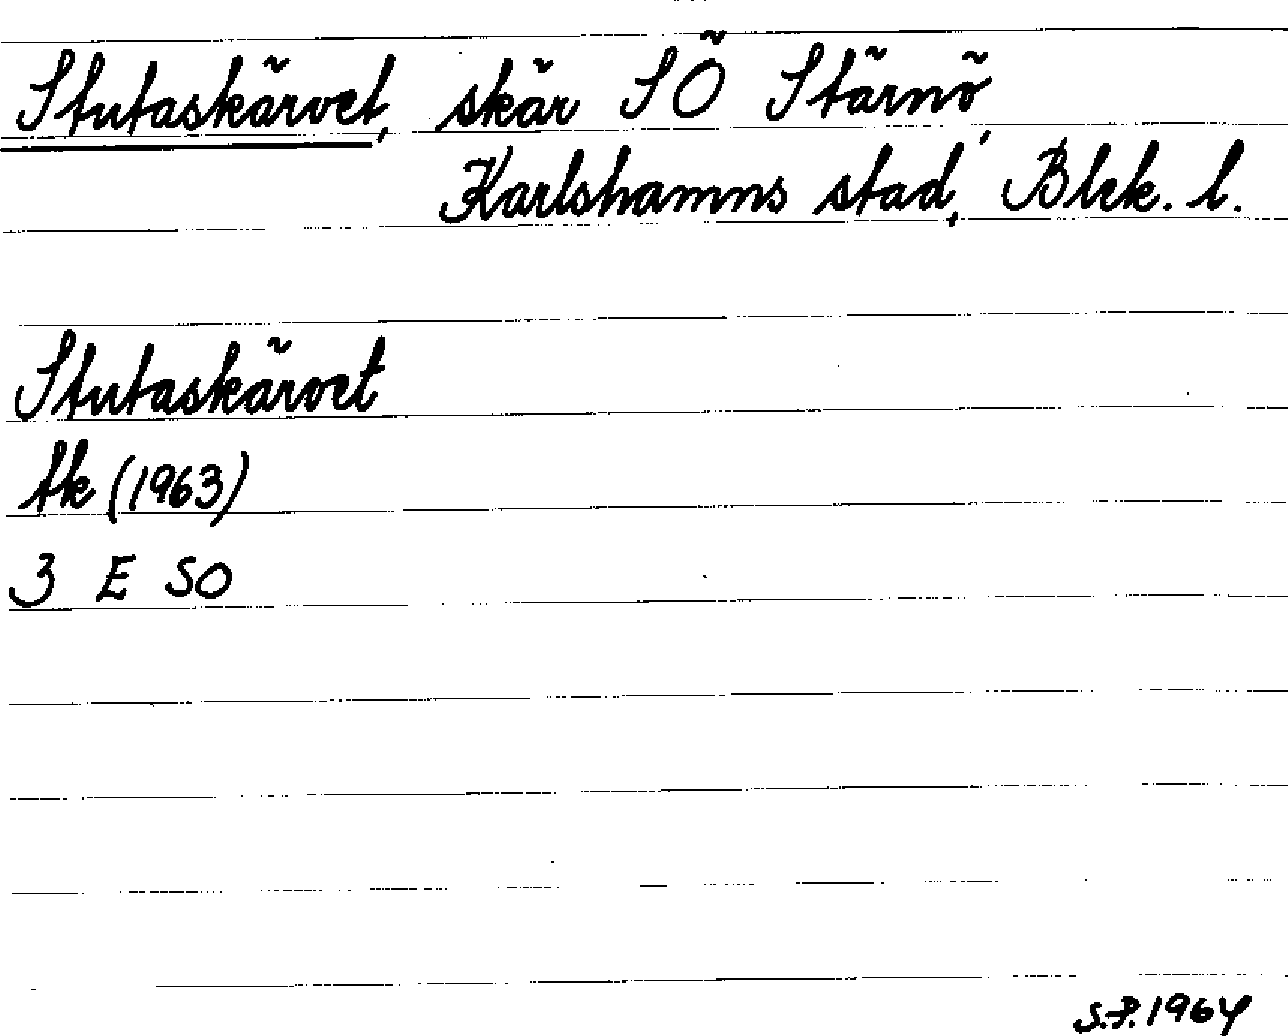 Stutaskärvet, skär SÖ Stärnö,
Karlshamns stad, Blek. l.
Stutaskärvet
tk (1963)
3 E SO
S.P. 1964